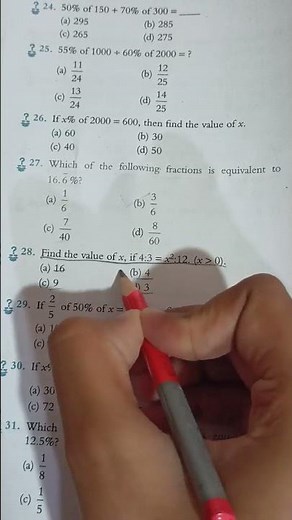 24. 50% of 150 + 70% of 300 = ____
(a) 295 (b) 285
(c) 265 (d) 275
25. 55% of 1000 + 60% of 2000 = ?
(a) 11/24 (b) 12/25
(c) 13/24 (d) 14/25
26. If x% of 2000 = 600, then find the value of x.
(a) 60 (b) 30
(c) 40 (d) 50
27. Which of the following fractions is equivalent to
16.6̅ %?
(a) 1/6 (b) 3/6
(c) 7/40 (d) 8/60
28. Find the value of x, if 4:3 = x²:12, (x > 0).
(a) 16 (b) 4
(c) 9 3
29. If 2/5 of 50% of x =
(a)
(c)
30. If x%
(a) 30
(c) 72
31. Which
12.5%?
(a) 1/8
(c) 1/5